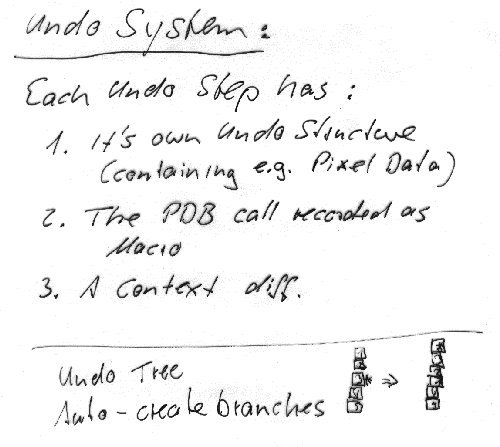 Undo System:
Each Undo Step has:
1. It's own Undo Structure
(containing e.g. Pixel Data)
2. The PDB call recorded as
Macro
3. A Context diff.
Undo Tree
Auto-create branches